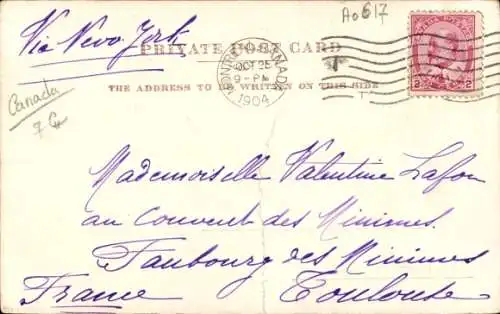 Ao617
Via New York
PRIVATE POST CARD
MONTREAL CANADA
OCT 25
9-PM
1904
CANADA POSTAGE
2 2
THE ADDRESS TO BE WRITTEN ON THIS SIDE
Canada
Mademoiselle Valentine Lafon
au Couvent des Minimes
Faubourg des Minimes
France Toulouse